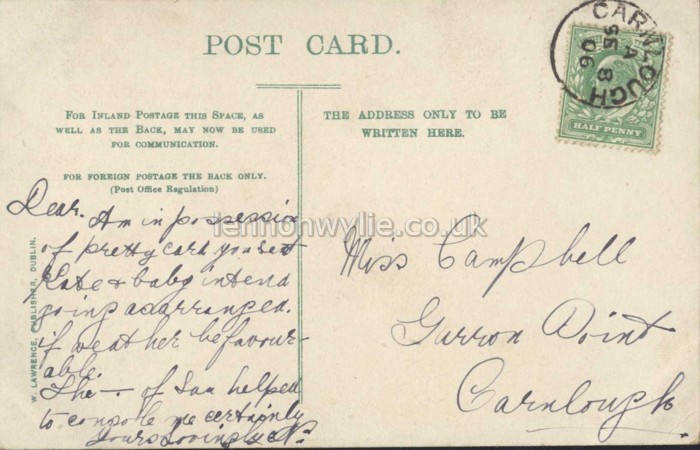 POST CARD.
FOR INLAND POSTAGE THIS SPACE, AS
WELL AS THE BACK, MAY NOW BE USED
FOR COMMUNICATION.
FOR FOREIGN POSTAGE THE BACK ONLY.
(Post Office Regulation)
THE ADDRESS ONLY TO BE
WRITTEN HERE.
CARNLOUGH
A
SE 8
06
HALF PENNY
lennonwylie.co.uk
W. LAWRENCE, PUBLISHER, DUBLIN.
Dear. Am in possession
of pretty card you sent
Kate & baby intend
going as arranged.
if weather be favour-
able.
The — of Sam helped
to console me certainly
Yours Lovingly N.
Miss Campbell
Garron Point
Carnlough